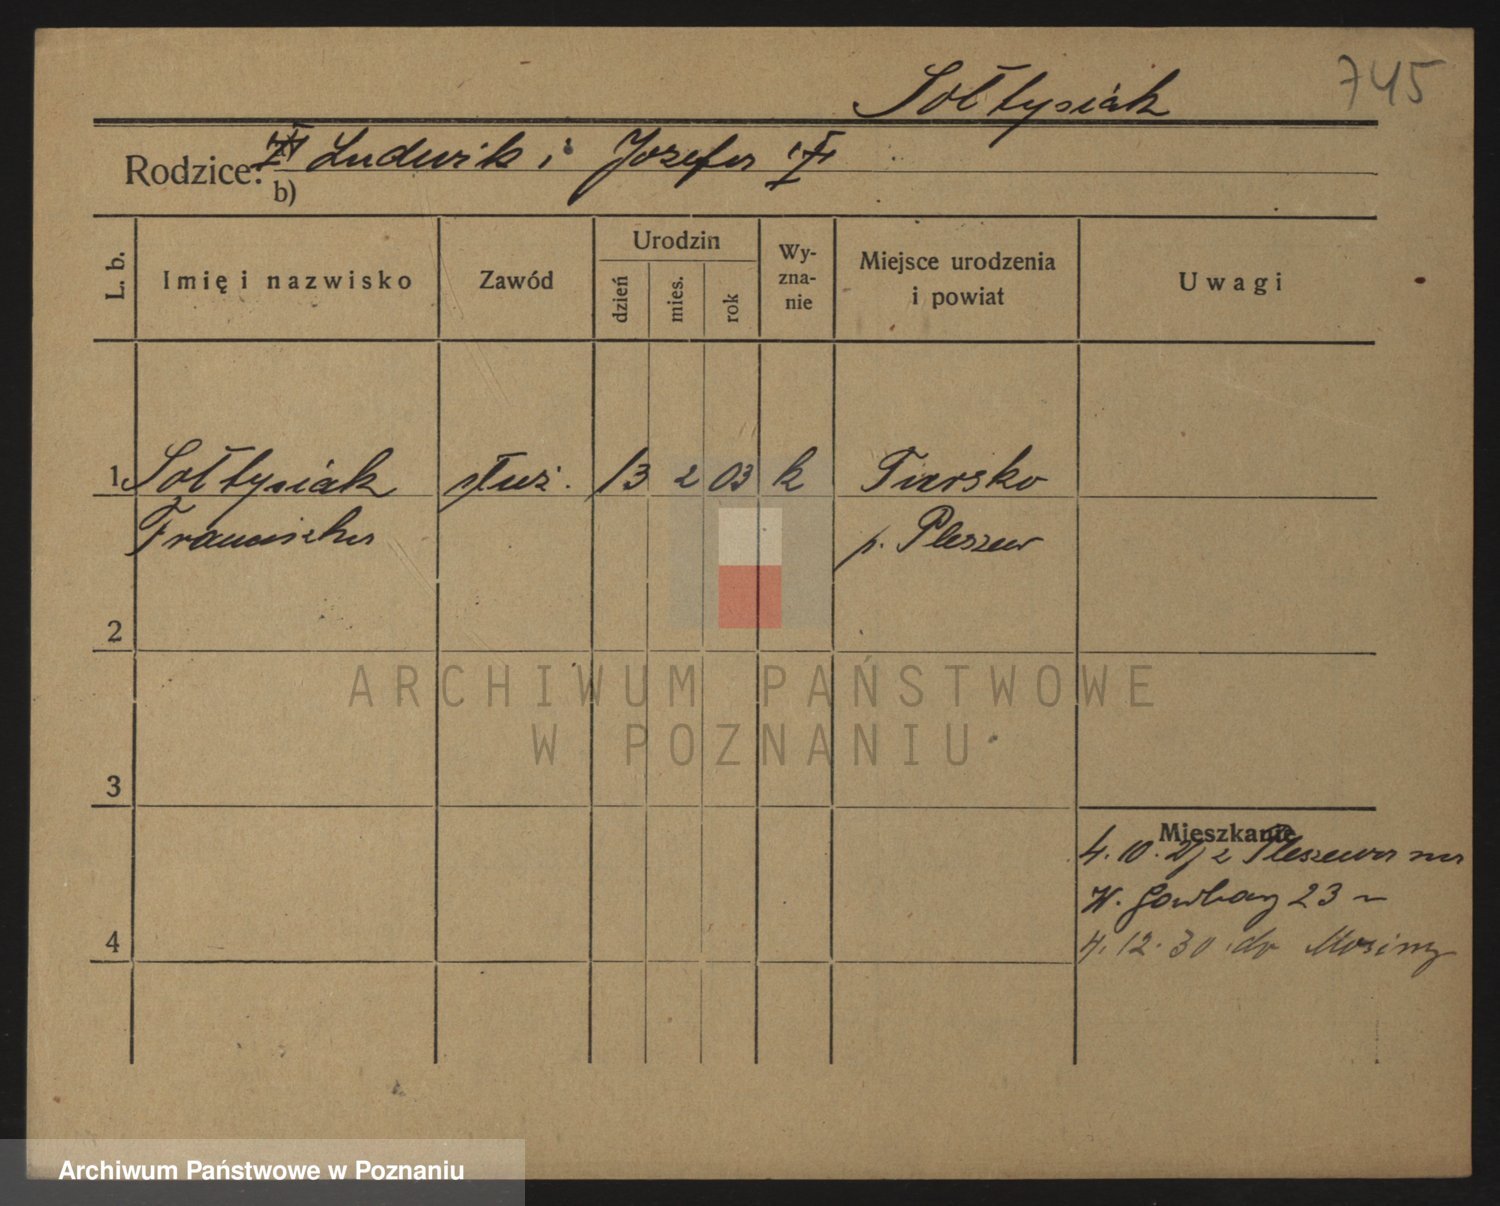 745
Sołtysiak
Rodzice: Ludwik i Józefa
b)
L. b.
Imię i nazwisko
Zawód
Urodzin
dzień
mies.
rok
Wy-
zna-
nie
Miejsce urodzenia
i powiat
Uwagi
1 Sołtysiak służ. 13 2 03 k
Franciszka p. Pleszew
2
3
4
Mieszkanie
4. 10. z Pleszewa na
W. Garbary 23
4. 12. 30 do Mosiny
ARCHIWUM PAŃSTWOWE
W POZNANIU
Archiwum Państwowe w Poznaniu